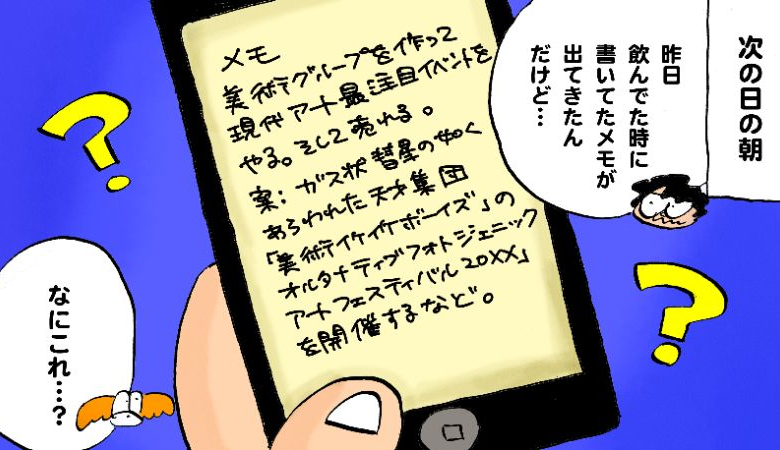 次の日の朝
昨日
飲んでた時に
書いてたメモが
出てきたん
だけど…
メモ
美術テグループを作って
現代アート最注目イベントを
やる。そして売れる。
案：ガス状彗星の如く
あらわれた天才集団
「美術テイケイケボーイズ」の
オルタナティヴフォトジェニック
アートフェスティバル20XX」
を開催するなど。
なにこれ…?